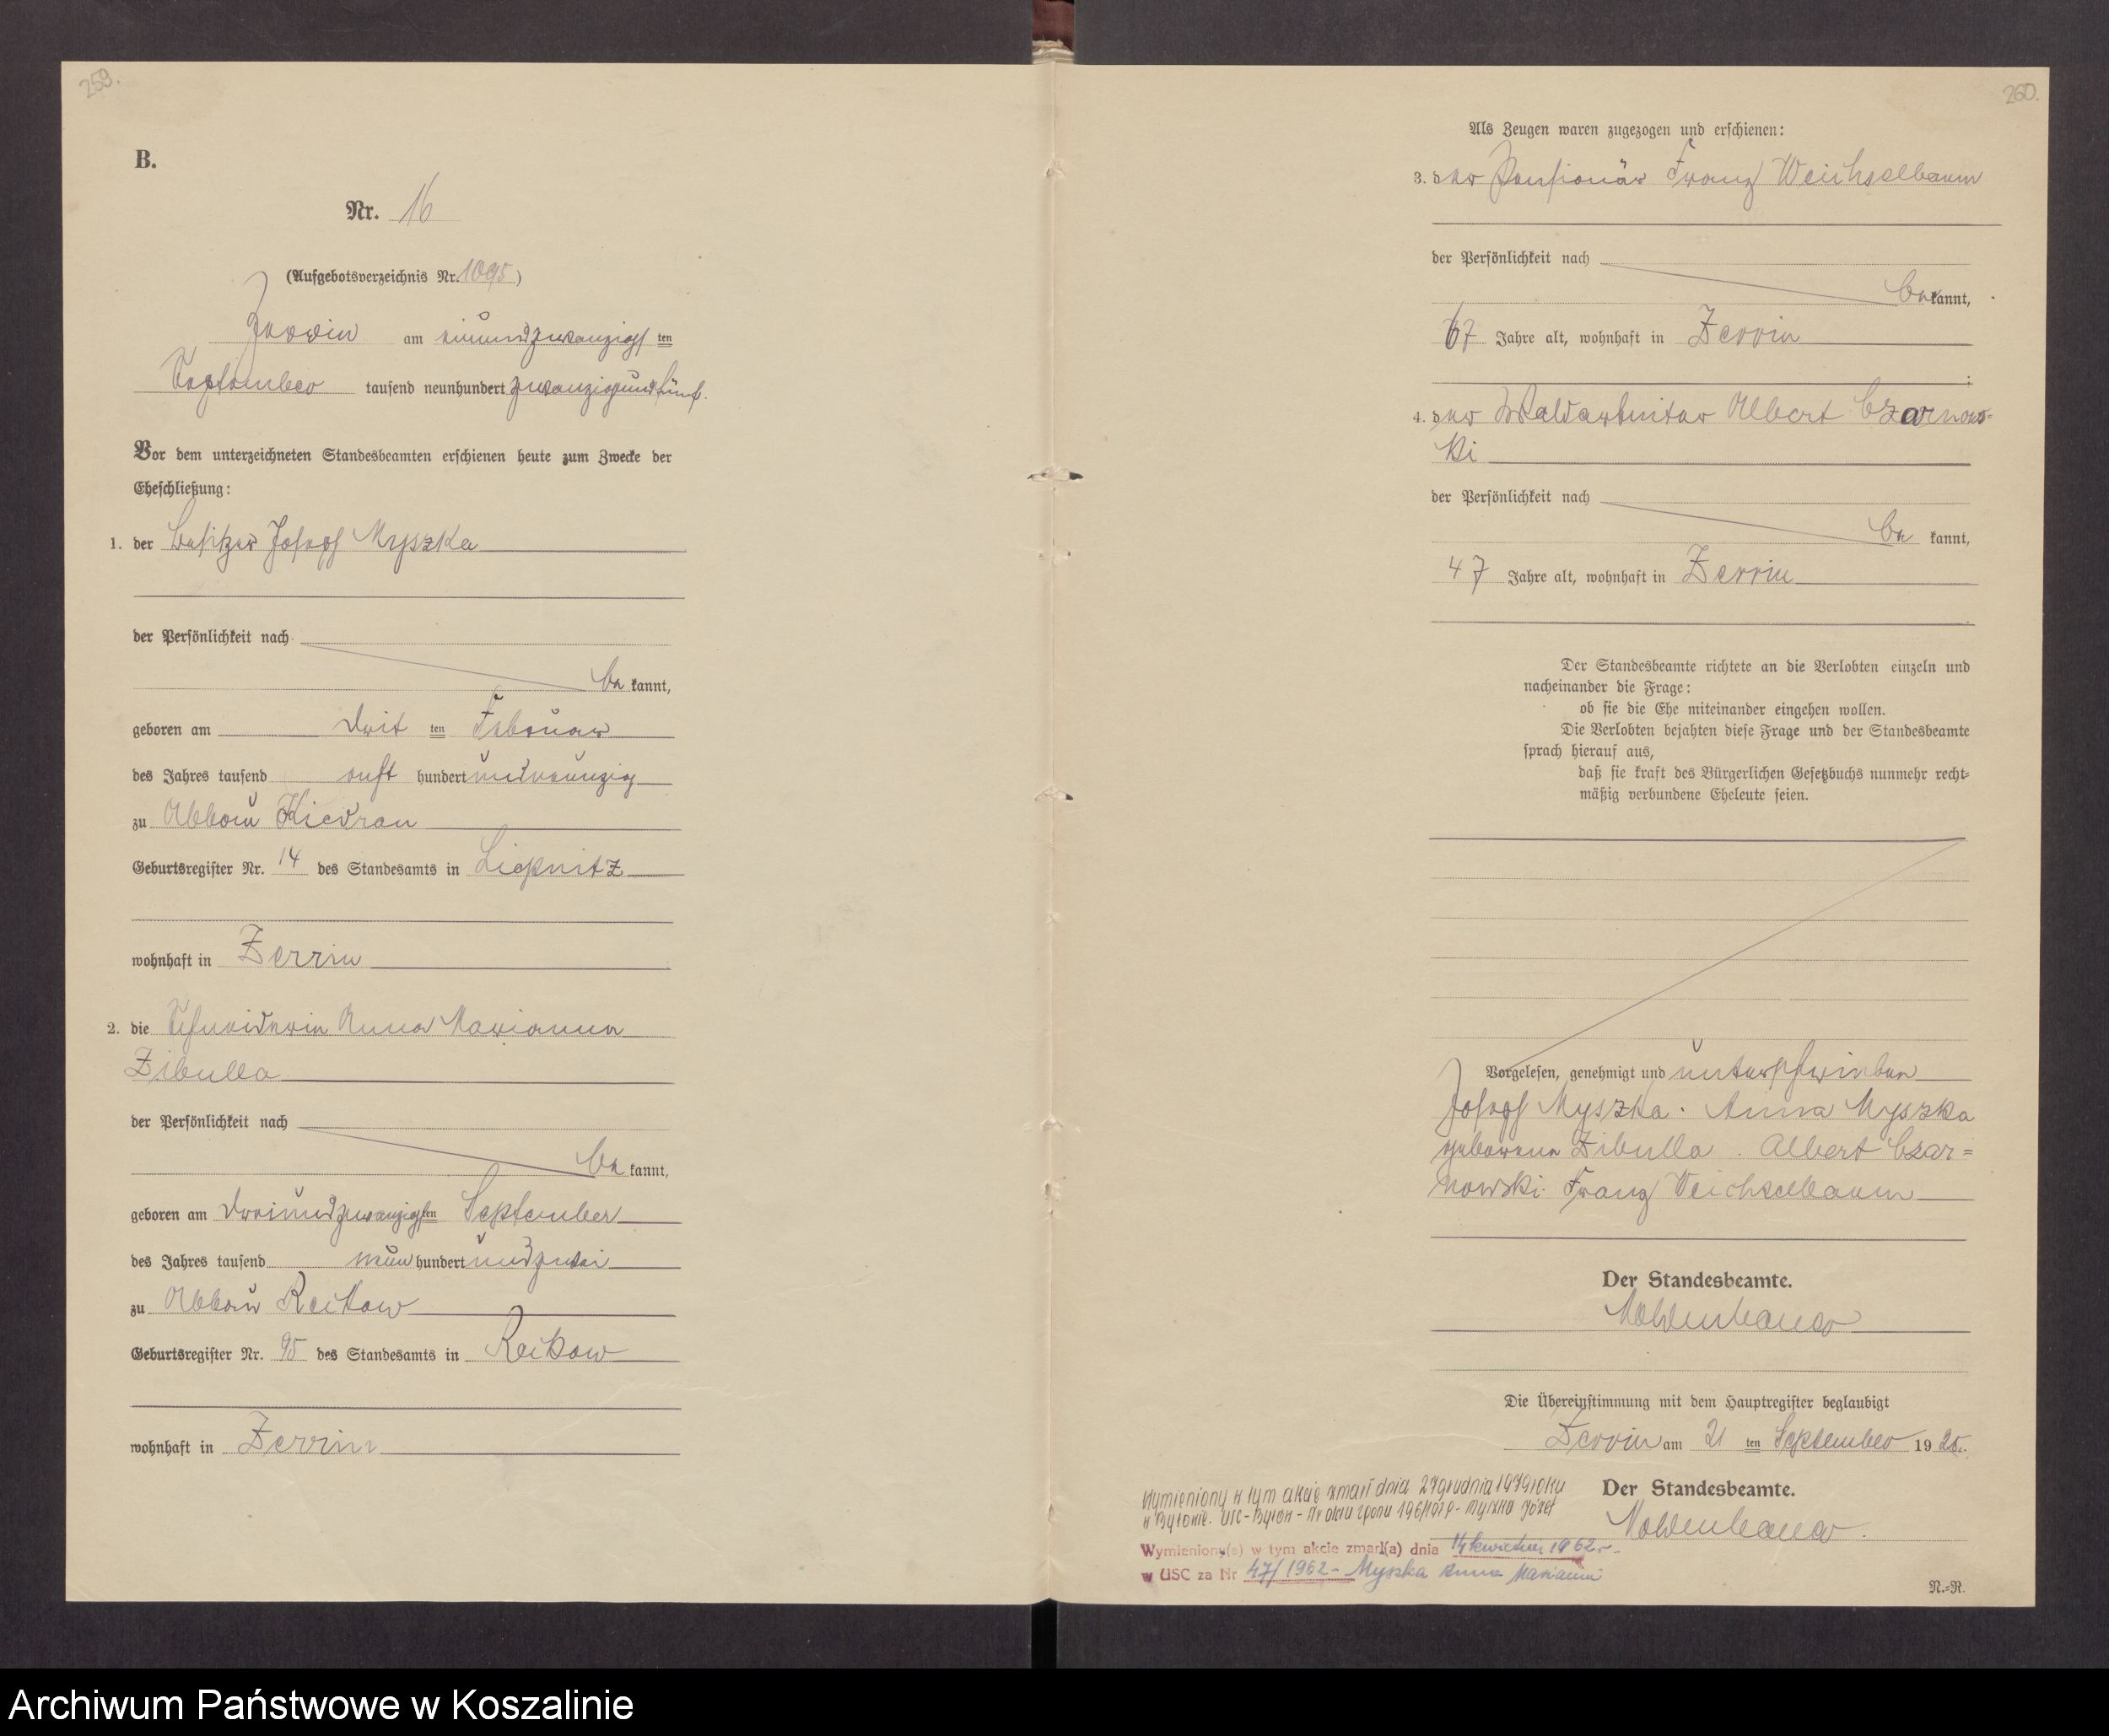 259.
B.
Nr. 16
(Aufgebotsverzeichnis Nr. 1095)
Zerrin am einundzwanzigsten
September tausend neunhundert zwanzigundfünf.
Vor dem unterzeichneten Standesbeamten erschienen heute zum Zwecke der
Eheschließung:
1. der Besitzer Joseph Myszka
der Persönlichkeit nach
be kannt,
geboren am drit ten Februar
des Jahres tausend acht hundert undneunzig
zu Abbau Kiedrau
Geburtsregister Nr. 14 des Standesamts in Liepnitz
wohnhaft in Zerrin
2. die Schneiderin Anna Marianna
Zibulla
der Persönlichkeit nach
be kannt,
geboren am dreiundzwanzigsten September
des Jahres tausend neun hundert undzwei
zu Abbau Reckow
Geburtsregister Nr. 95 des Standesamts in Reckow
wohnhaft in Zerrin
260.
Als Zeugen waren zugezogen und erschienen:
3. der Pensionär Franz Weichselbaum
der Persönlichkeit nach
bekannt,
67 Jahre alt, wohnhaft in Zerrin
4. der Waldarbeiter Albert Czarnow=
ki
der Persönlichkeit nach
be kannt,
47 Jahre alt, wohnhaft in Zerrin
Der Standesbeamte richtete an die Verlobten einzeln und
nacheinander die Frage:
ob sie die Ehe miteinander eingehen wollen.
Die Verlobten bejahten diese Frage und der Standesbeamte
sprach hierauf aus,
daß sie kraft des Bürgerlichen Gesetzbuchs nunmehr recht=
mäßig verbundene Eheleute seien.
Vorgelesen, genehmigt und unterschrieben
Joseph Myszka. Anna Myszka
geborene Zibulla. Albert Czar=
nowski. Franz Weichselbaum
Der Standesbeamte.
Die Übereinstimmung mit dem Hauptregister beglaubigt
Zerrin am 21 ten September 1925.
Der Standesbeamte.
Wymieniony w tym akcie zmarł dnia 27 grudnia 1979 roku
w Bytowie. USC-Bytów - Nr aktu zgonu 196/1979 - Myszka Józef
Wymieniony(a) w tym akcie zmarł(a) dnia 14 kwietnia 1962 r.
w USC za Nr 47/1962 - Myszka Anna Marianna
N.=R.
Archiwum Państwowe w Koszalinie